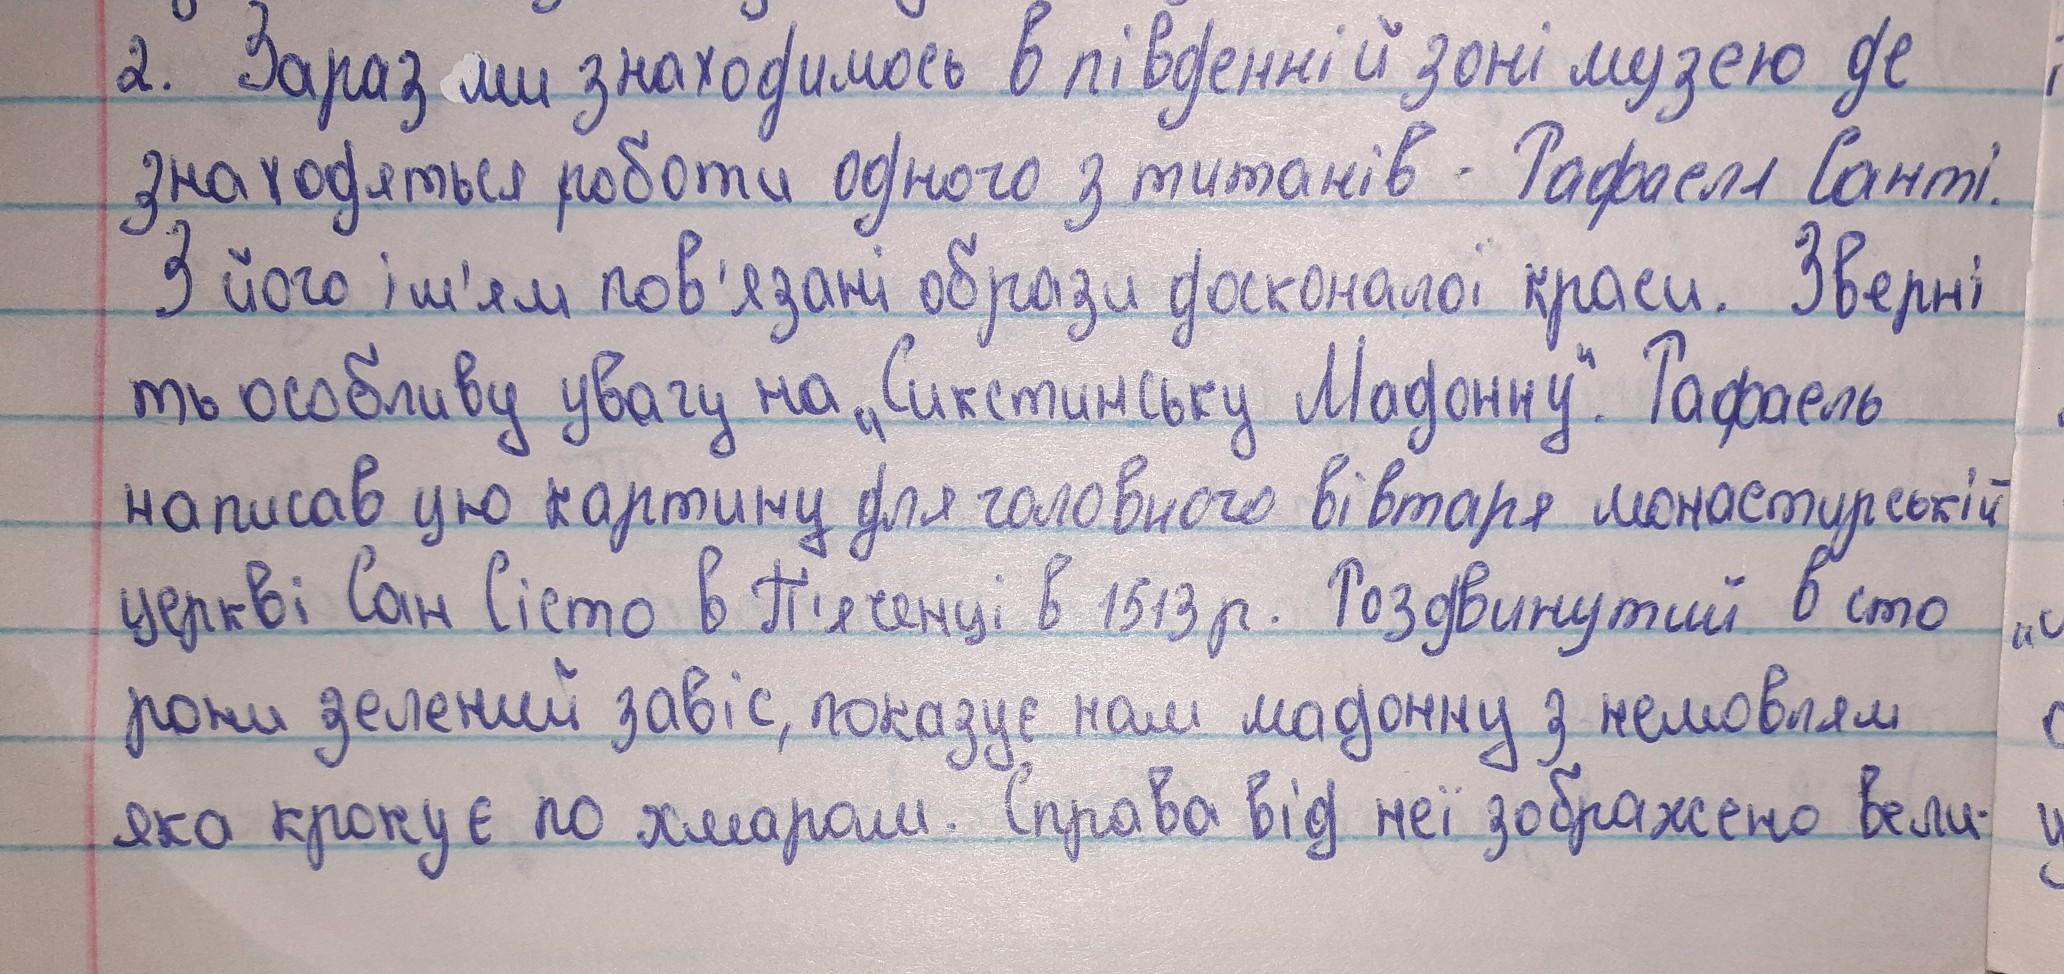 2. Зараз ми знаходимось в південній зоні музею де
знаходяться роботи одного з титанів - Рафаеля Санті.
З його ім'ям пов'язані образи досконалої краси. Зверні
ть особливу увагу на „Сикстинську Мадонну". Рафаель
написав цю картину для головного вівтаря монастирській
церкві Сан Сісто в П'яченці в 1513 р. Роздвинутий в сто
рони зелений завіс, показує нам мадонну з немовлям
яка крокує по хмарам. Справа від неї зображено вели-